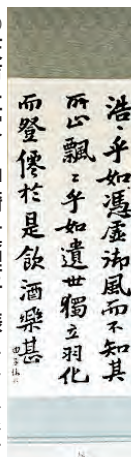 浩〻乎如馮虛御風而不知其
所止飄〻乎如遺世獨立羽化
而登僊於是飲酒樂甚